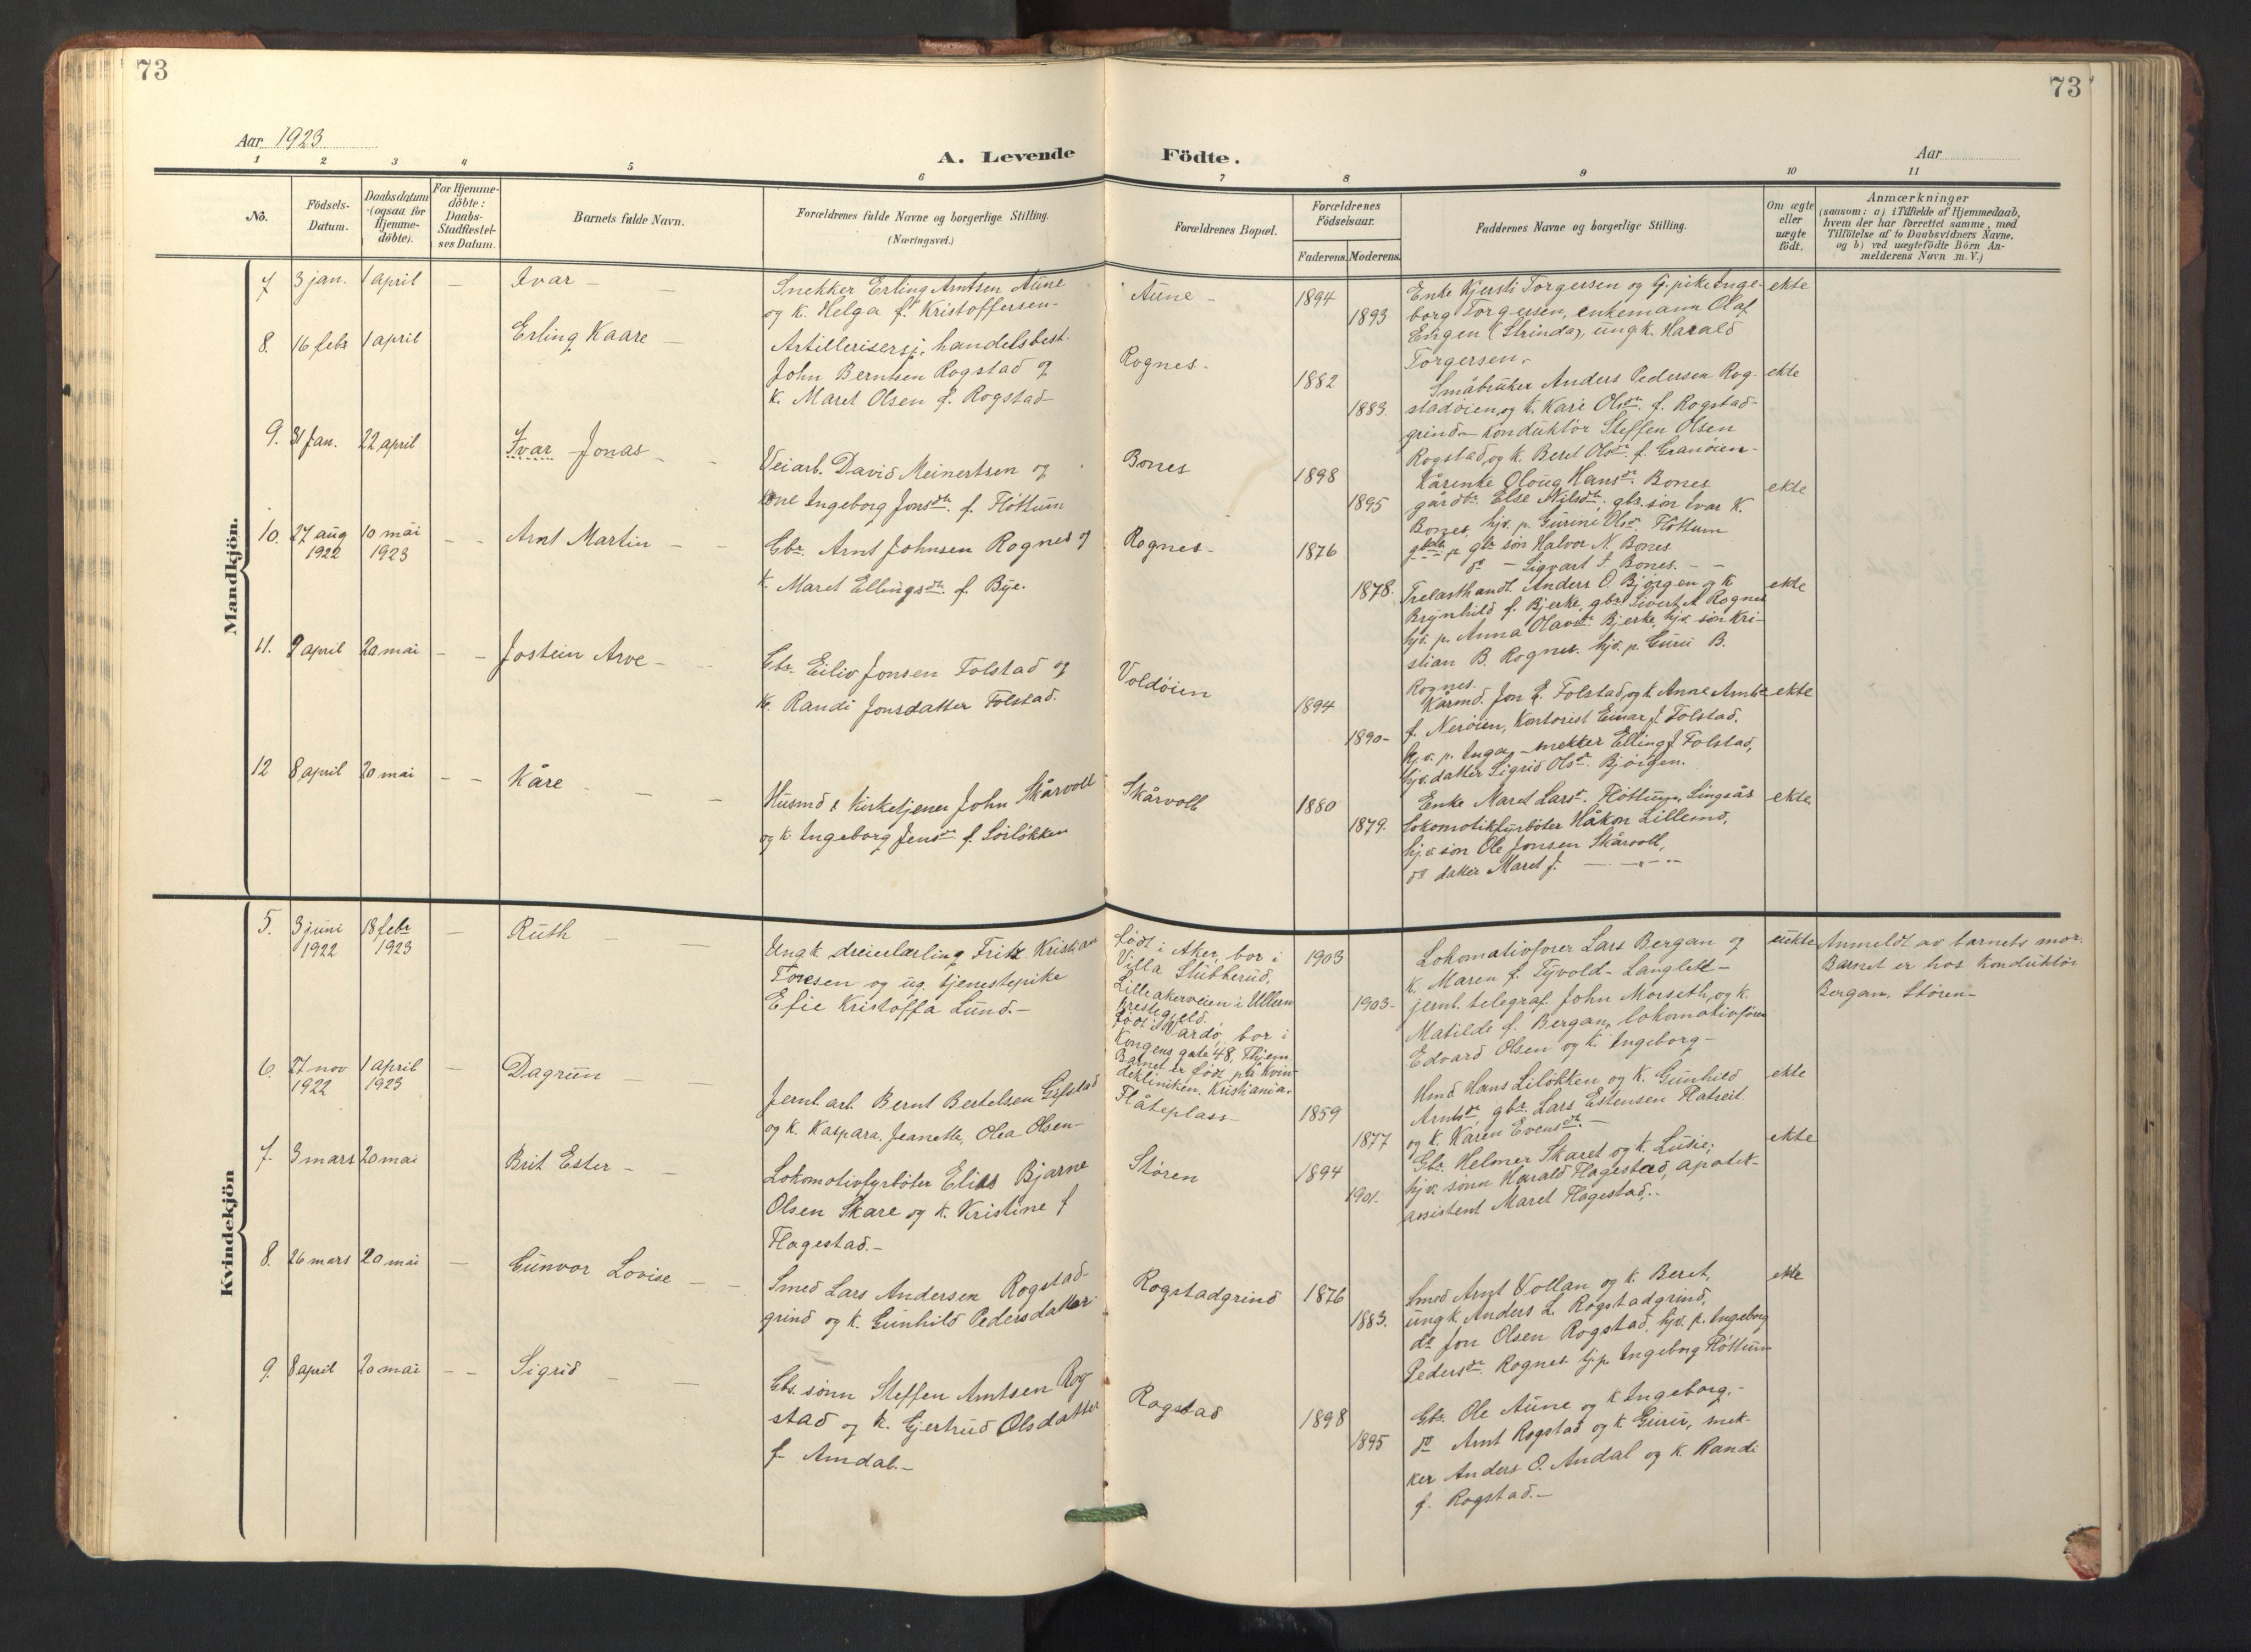 73
73
Aar 1923
A. Levende Födte.
Aar
1 2 3 4 5 6 7 8 9 10 11
No.
Födsels-
Datum.
Daabsdatum
(ogsaa for
Hjemme-
döbte).
For Hjemme-
döbte:
Daabs-
Stadfestel-
ses Datum.
Barnets fulde Navn.
Forældrenes fulde Navne og borgerlige Stilling.
(Næringsvei.)
Forældrenes Bopæl.
Forældrenes
Födselsaar.
Faderens. Moderens.
Faddernes Navne og borgerlige Stilling.
Om ægte
eller
uægte
födt.
Anmærkninger
(saasom: a) i Tilfælde af Hjemmedaab,
hvem der har forrettet samme, med
Tilföielse af to Daabsvidners Navne,
og b) ved uægtefödte Börn An-
melderens Navn m. V.)
Mandkjön.
7 3 jan. 1 april — Ivar —
Snekker Erling Arntsen Aune
og k. Helga f. Kristoffersen-
Aune -
1894
1893
Enke Kjersti Torgersen og Gj. pike Inge-
borg Torgersen, enkemann Olaf
Engen (Strinda), ungk. Harald
Torgersen.
ekte
8. 16 febr 1 april — Erling Kaare —
Artillerisersj., handelsbest.
John Berntsen Rogstad og
k. Maret Olsen f. Rogstad
Rognes.
1882
1883.
Småbruker Anders Pedersen Rog-
stadøien, og k. Kari Olsdr. f. Rogstad-
grind - Konduktør Steffen Olsen
Rogstad, og k. Beret Olsdr. f. Granøien-
ekte
9. 31 Jan. 22 april Ivar Jonas
Veiarb. David Meinertsen og
kone Ingeborg Jonsdtr. f. Fløttum
Bones
1898
1895
Kårenke Oloug Hansdr. Bones
gårdbr. Else Nilsdtr., gbr. søn Ivar K.
Bones, hjv. p. Gurine Olsdr. Fløttum
p gbr søn Halvor N. Bones
do - Sigvart J. Bones. - -
ekte
10. 27 aug 1922 10 mai 1923 - - Arnt Martin
Gbr. Arnt Johnsen Rognes og
k. Maret Ellingsdtr. f. Bye.
Rognes-
1876
1878.
Trelasthandl. Anders O Bjørgen og k
Brynhild f. Bjerke, gbr. Sivert A Rognes
hjv. p. Anna Olavsdtr Bjerke, hjv. søn Kri-
stian B. Rognes. hjv. p. Guri B.
Rognes.
ekte
11. 2 april 20 mai - - Jostein Arve -
Gbr. Eiliv Jonsen Folstad og
k. Randi Jonsdatter Folstad.
Voldøien
1894
1890-
Kårmd. Jon E. Folstad, og k Anne
f. Nerøien, Kontorist Einar J. Folstad,
hjv. p. Inga, - snekker Elling J. Folstad,
hjv. datter Sigrid Olsdr. Bjørgen.
ekte
12 8 april 20 mai - - Kåre
Husmd & Kirketjener John Skårvoll
og k. Ingeborg Jensdr. f. Sørløkken
Skårvoll
1880
1879.
Enke Maret Larsdr. Fløttum, Singsås
Lokomotikfyrbøter Håkon Lillemo,
hjv. søn Ole Jonsen Skårvoll,
do datter Maret J. — " —
ekte
Kvindekjön
5. 3 juni 1922 18 febr 1923 — Ruth —
Ungk dreierlærling Fritz Kristian
Toresen og ug. tjenestepike
Efie Kristoffa Lund.-
Født i Aker, bor i
Villa Stubberud,
Lilleakerveien i Ullern
prestegjeld.
Født i Vardø, bor i
Kongens gate 48, Thjem.
Barnet er født på Kvin-
dekliniken, Kristiania.
1903
1903-
Lokomotivfører Lars Bergan og
k. Maren f. Tyvold - Langlett -
jernb. telegraf. John Morseth, og k.
Matilde f. Bergan, lokomotivfører
Edvard Olsen og k. Ingeborg -
uekte
Anmeldt av barnets mor.
Barnet er hos Konduktør
Bergan, Støren-
6. 27 nov 1922 1 april 1923 — Dagrun —
Jernb. arb. Bernt Bertelsen Gifstad
og k. Kaspara, Jeanette, Olea Olsen-
Flåteplass-
1859
1877
Hmd Hans Liløkken og k. Gunhild
Arntsdr., gbr. Lars Estensen
og k. Karen Evensdr. -
ekte
7. 3 mars 20 mai Brit Ester -
Lokomotivfyrbøter Elias Bjarne
Olsen Skare og k. Kristine f
Flagestad.-
Støren
1894
1901.
Gbr. Helmer Skaret og k. Lusie;
hjv. sønn Harald Flagestad, apotek-
assistent Maret Flagestad..
ekte
8. 26 mars 20 mai — Gunvor Lovise —
Smed Lars Andersen Rogstad-
grind og k. Gunhild Pedersdatter
Rogstadgrind
1876
1883.
Smed Arnt Vollan og k. Beret,
ungk. Anders L. Rogstadgrind,
do Jon Olsen Rogstad, hjv. p. Ingeborg
Pedersdr. Rognes tj.p. Ingeborg Fløttum
ekte
9. 8 april 20 mai - - Sigrid
Gbr. sønn Steffen Arntsen Rog-
stad og k. Gjertrud Olsdatter
f. Amdal.-
Rogstad
1898
1895
Gbr. Ole Aune og k Ingeborg,-
do Arnt Rogstad og k Guru, snek-
ker Anders O. Amdal og k. Randi
f. Rogstad.-